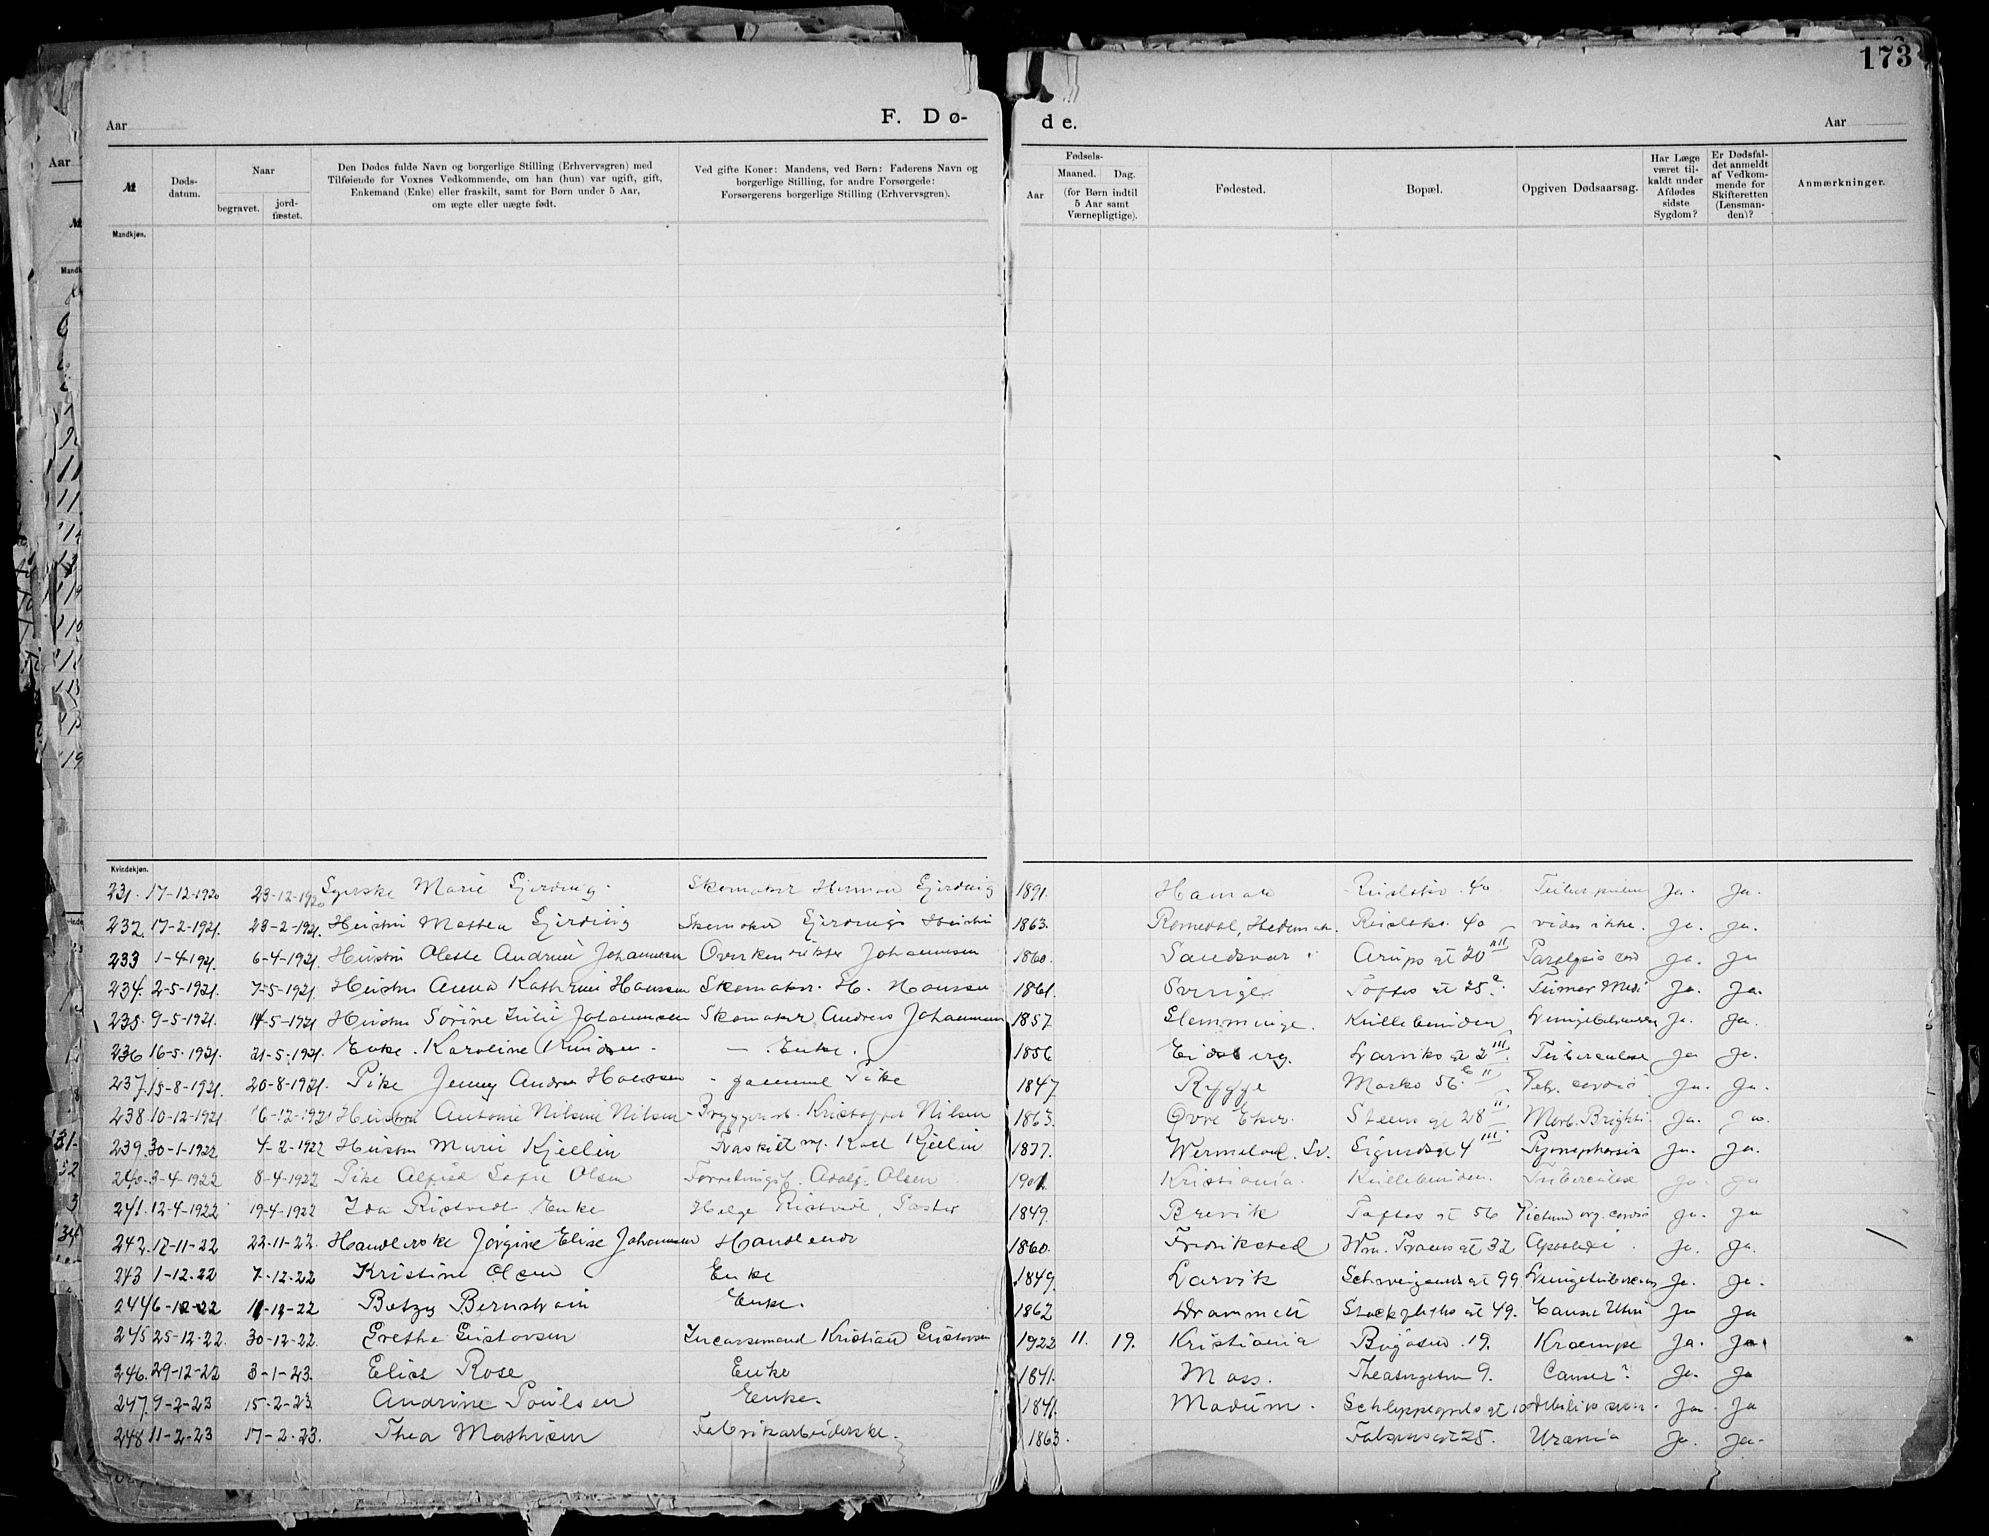 173
Aar
F. Dø-
de.
Aar
№
Døds-
datum.
Naar
begravet.
jord-
fæstet.
Den Dødes fulde Navn og borgerlige Stilling (Erhvervsgren) med
Tilføiende for Voxnes Vedkommende, om han (hun) var ugift, gift,
Enkemand (Enke) eller fraskilt, samt for Børn under 5 Aar,
om ægte eller uægte født.
Ved gifte Koner: Mandens, ved Børn: Faderens Navn og
borgerlige Stilling, for andre Forsørgede:
Forsørgerens borgerlige Stilling (Erhvervsgren).
Fødsels-
Aar
Maaned.
Dag.
(for Børn indtil
5 Aar samt
Værnepligtige).
Fødested.
Bopæl.
Opgiven Dødsaarsag.
Har Læge
været til-
kaldt under
Afdødes
sidste
Sygdom?
Er Dødsfal-
det anmeldt
af Vedkom-
mende for
Skifteretten
(Lensman-
den)?
Anmærkninger.
Mandkjøn.
Kvindekjøn.
231. 17-12-1920 23-12-1920 Syerske Marie Gjerding. Skomaker Herman Gjerding 1891. Hamar Ja. Ja.
232. 17-2-1921. 23-2-1921. Hustru Mathea Gjerding Skomaker Gjerdings Hustru 1863. Romedal, Hedemark. 40 vides ikke. Ja. Ja.
233 1-4-1921. 6-4-1921. Hustru Olette Andrine Johannesen Johannesen 1860. Sandsvær Arups gt 20 III Ja. Ja
234. 2-5-1921. 7-5-1921. Hustru Anna Kathrine Hansen Skomaker. H. Hansen 1861. Sverige. Toftes gt 25. Ja. Ja.
235. 9-5-1921. 14-5-1921 Hustru Sorine Julie Johannesen Skomaker Andreas Johannesen 1857. Glemminge. Ja. Ja.
236 16-5-1921. 21-5-1921. Enke. Karoline Knudsen. — Enke. 1856 Eidsberg. Larviks gt 2 III. Tuberculose Ja Ja.
237. 15-8-1921. 20-8-1921. Pike Jenny Andrea Hansen - gammel Pike 1847. Rygge Ja. Ja.
238. 10-12-1921 16-12-1921 Hustru Antonie Nilsine Nilsen Kristoffer Nilsen 1863. Øvre Eker. Steens gt 28 II. Morb. Brighti Ja.
239. 30-1-1922 4-2-1922 Hustru Marie Kjellin Karl Kjellin Wermeland. Sv. Sigurds gt 4 III Ja. Ja.
240. 3-4-1922 8-4-1922 Pike Alfild Sofie Olsen Adolf Olsen Kristiania. Tuberculose Ja Ja
241. 12-4-1922 19-4-1922 Ida Ristvedt Enke Helge Ristvedt, Pastor 1849. Brevik Toftes gt 56 Ja. Ja
242. 17-11-22 22-11-22. Handlerske Jørgine Elise Johannesen Handlende 1860. Fredrikstad Wm. Thranes gt 32 Apopleksi. Ja. Ja.
243 1-12-22 7-12-22 Kristine Olsen Enke 1849. Larvik Schweigaards gt 99. Ja. Ja.
244 6-12-22 11-12-22 Betzy Bernstein Enke. 1862 Drammen Stockfleths gt 49. Cancer Uteri Ja Ja
245 25-12-22. 30-12-22. Grethe Gustavsen Incassomand Kristian Gustavsen 1922 11. 19. Kristiania 19. Krampe Ja. Ja.
246. 29-12-22 3-1-23. Elise Rose Enke 1841. Moss. Theatergaten 9. Cancer? Ja. Ja
247. 9-2-23 15-2-23 Andrine Poulsen Enke. 1841. Modum. Ja. Ja
248 11-2-23 17-2-23. Thea Mathisen Fabrikarbeiderske. 1863. Falsens gt 25. Urämia Ja. Ja.